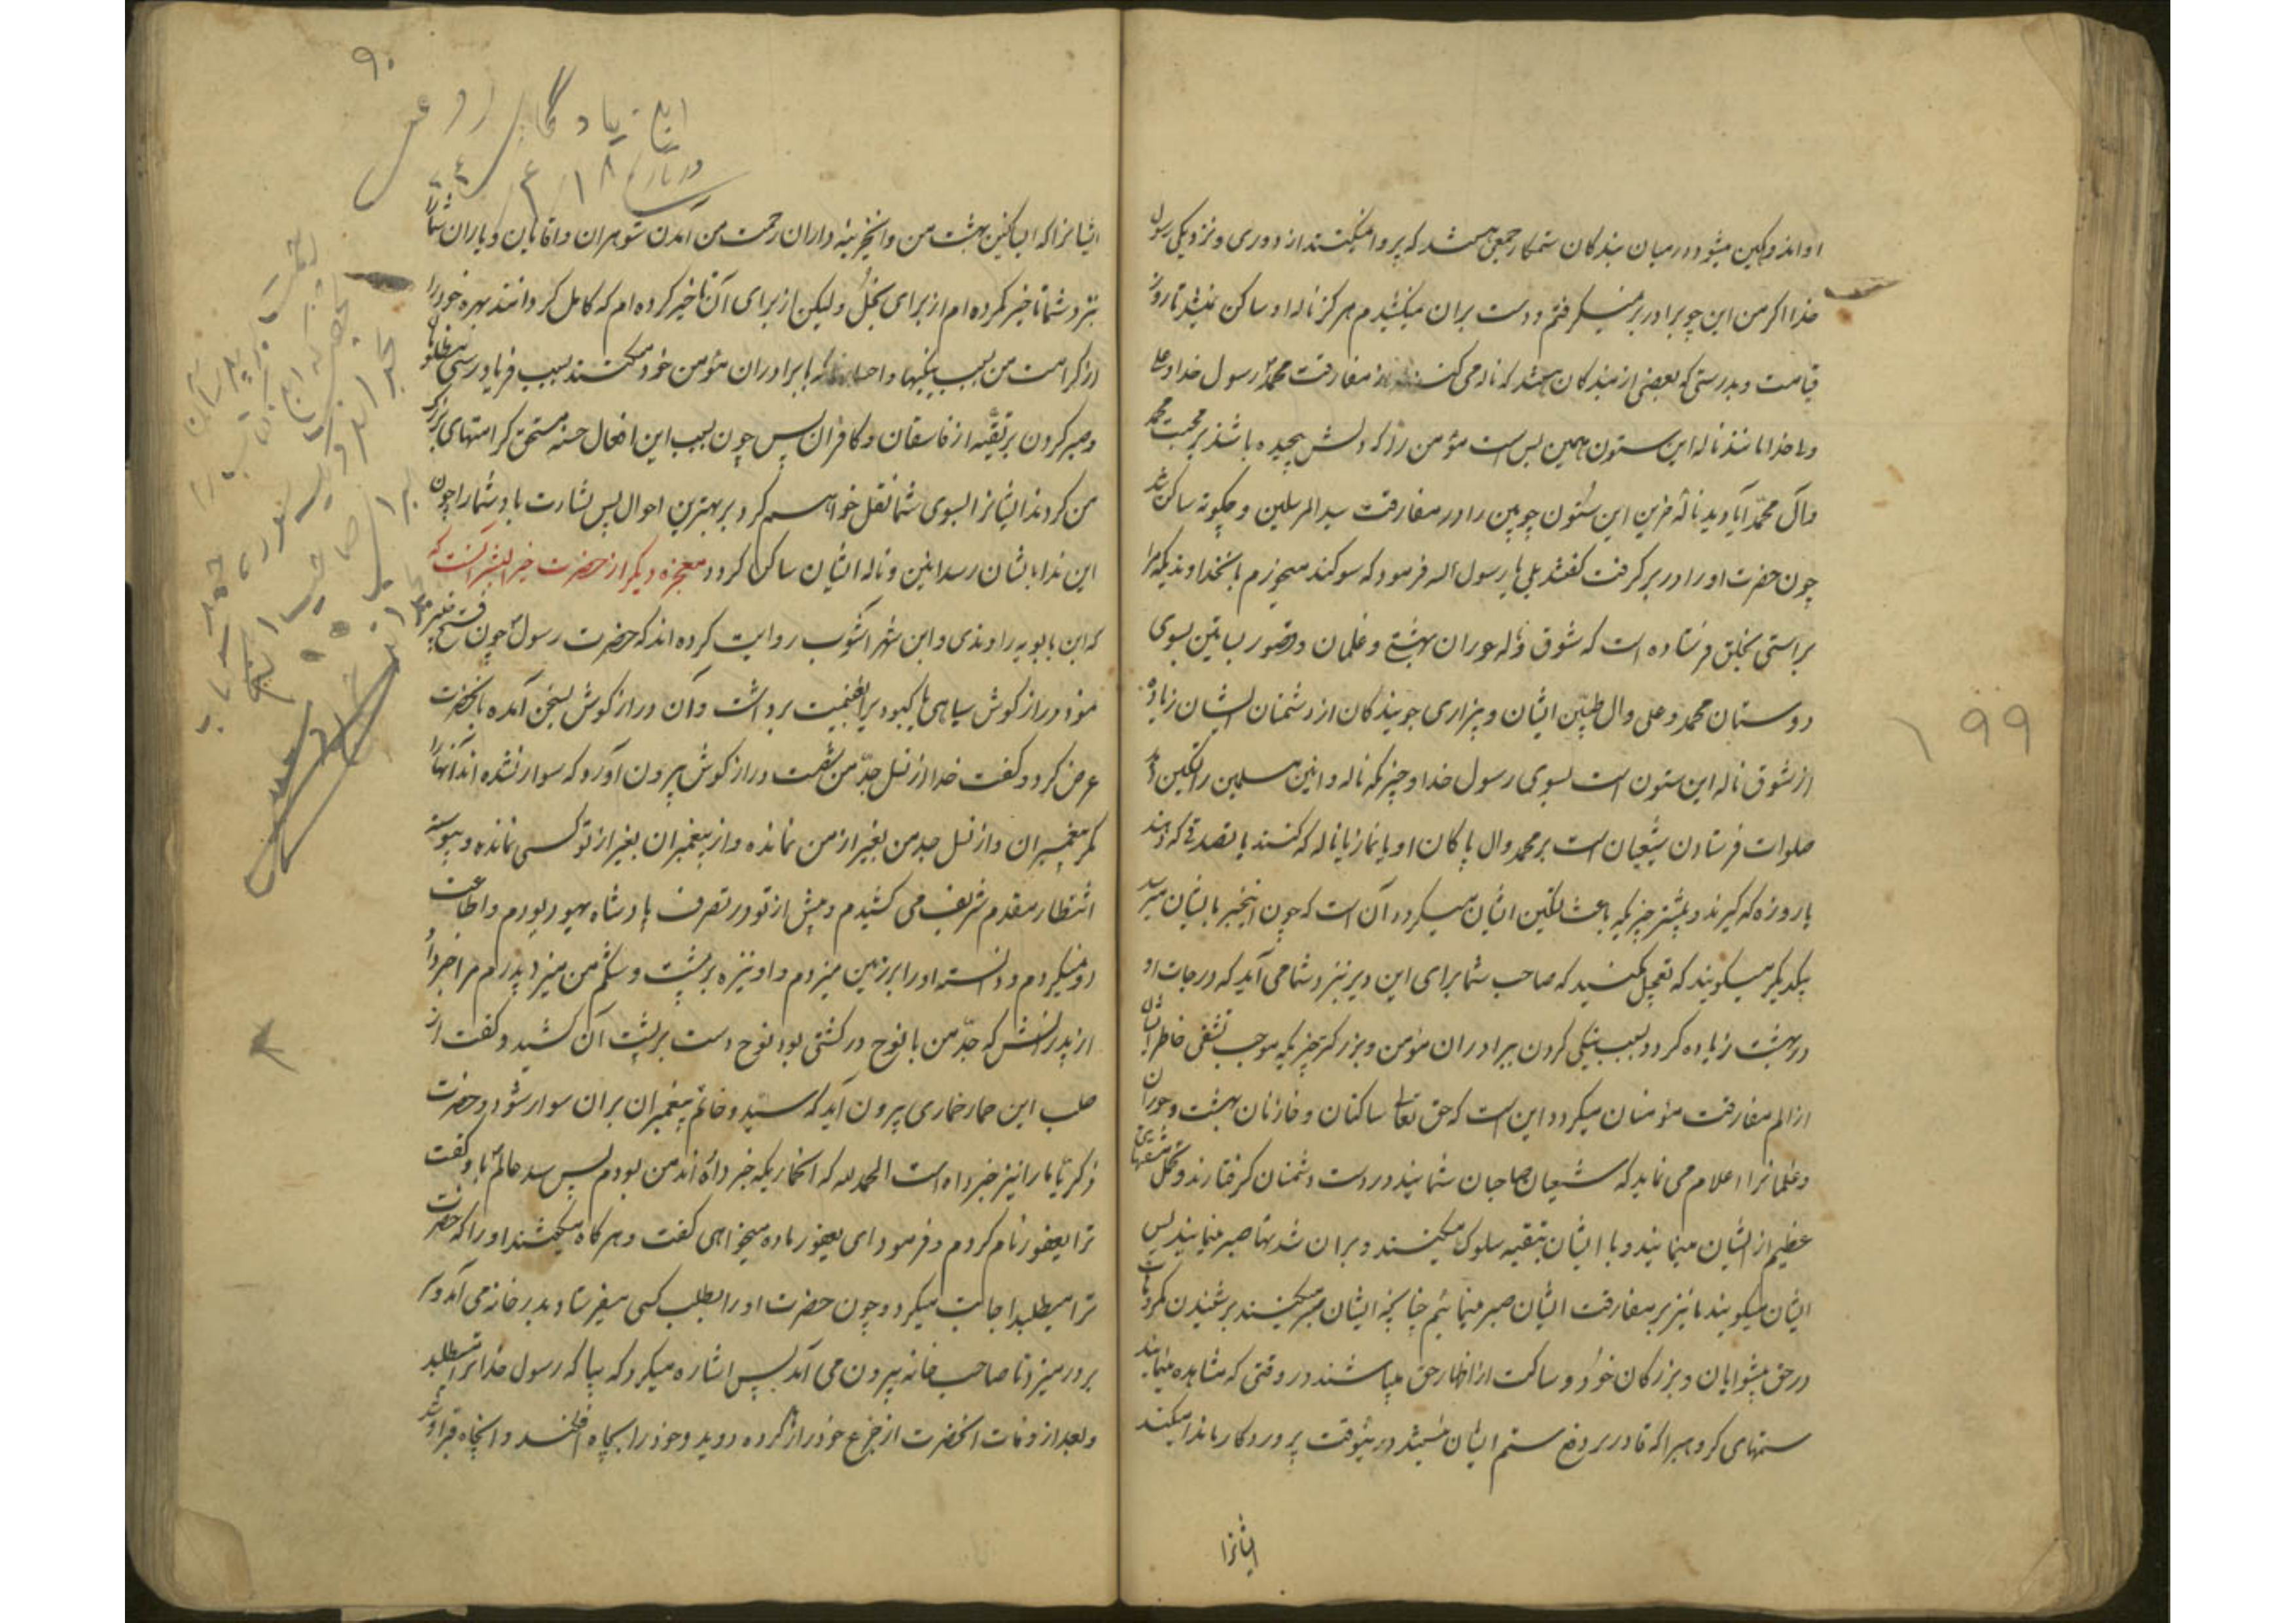 او اندوهگین میشود در میان بندگان ستمکار جمعی هستند که پروا نمیکنند از دوری و نزدیکی رسول
خدا اگر من این چوبرا در بر نمیگرفتم و دست بران نمیکشیدم هرگز ناله او ساکن نمیشد تا روز
قیامت و بدرستی که بعضی از بندگان هستند که ناله می کنند از مفارقت محمد رسول خدا و علی
ولی خدا مانند ناله این ستون همین بس است مؤمن را که دلش پیچیده باشد بر محبت محمد
و آل محمد آیا دیدید ناله حزین این ستون چوبین را در مفارقت سید المرسلین و چگونه ساکن شد
چون حضرت او را در بر گرفت گفتند بلی یا رسول الله فرمود که سوگند میخورم بانخداوندیکه مرا
براستی بخلق فرستاده است که شوق و ناله حوران بهشتی و غلمان و قصور بساتین بسوی
دوستان محمد و علی و ال طیبین ایشان و بیزاری جویندگان از دشمنان ایشان زیاده
از شوق ناله این ستون است بسوی رسول خدا و چیزیکه ناله و انین مسلمین را تسکین دهد
صلوات فرستادن شیعیان است بر محمد وال پاکان او یا نماز یا ناله که کنند یا تصدقی که دهند
یا روزه که گیرند و بیشتر چیزیکه باعث تسکین ایشان میگردد آن است که چون اینخبر بایشان میرسد
یکدیگر میگویند که تعجیل مکنید که صاحب شما برای این دیر نزد شما می آید که درجات او
در بهشت زیاده گردد بسبب نیکی کردن ببرادران مؤمن و بزرگتر چیزیکه موجب تشفی خاطر ایشان
از الم مفارقت مؤمنان میگردد این است که حق تعالی ساکنان و خازنان بهشت و حوران
و غلمانرا اعلام می نماید که شیعیان صاحبان شمایند در دست دشمنان گرفتارند و تحمل مشقتهای
عظیم از ایشان مینمایند و با ایشان بتقیه سلوک میکنند و بران شدتها صبر مینمایند پس
ایشان میگویند ما نیز بر مفارقت ایشان صبر مینمائیم چنانچه ایشان صبر میکنند بر شنیدن مکروهات
در حق پیشوایان و بزرگان خود و ساکت از اظهار حق میباشند در وقتی که مشاهده مینمایند
ستمهای گروهیرا که قادر بر دفع ستم ایشان نیستند در ینوقت پروردگار ما ندا میکند
ایشانرا
۱۹۹
۹۰
این یادگار
در تاریخ ۱۸ / ۴ /
ایشانرا که ای ساکنین بهشت من و ای خزینه داران رحمت من آمدن شوهران و اقایان و یاران شما را
نزد شما تاخیر نکرده ام از برای بخل و لیکن از برای آن تاخیر کرده ام که کامل گردانند بهره خود را
از کرامت من بسبب نیکیها و احسانها که با برادران مؤمن خود میکنند بسبب فریاد رسی مظلومان
و صبر کردن بر تقیه از فاسقان و کافران پس چون بسبب این افعال حسنه مستحق کرامتهای بزرگ
من گردند ایشانرا بسوی شما نقل خواهم کرد بر بهترین احوال پس بشارت باد شما را چون
این ندا بایشان رسد انین و ناله ایشان ساکن گردد معجزه دیگر از حضرت خیر البشر آنست که
که ابن بابویه راوندی و ابن شهر اشوب روایت کرده اند که حضرت رسول چون فتح خیبر
نمود دراز گوش سیاهی یا کبود برا بغنیمت برداشت و آن دراز گوش بسخن آمده بانحضرت
عرض کرد و گفت خدا از نسل جد من شصت دراز گوش بیرون آورد که سوار نشده اند آنها را
مگر پیغمبران و از نسل جد من بغیر از من نمانده و از پیغمبران بغیر از تو کسی نمانده و پیوسته
انتظار مقدم شریف می کشیدم و پیش از تو در تصرف پادشاه یهود بودم و اطاعت
او نمیکردم و دانسته او را بر زمین میزدم و او نیزه بر پشت و شکم من میزد پدرم مرا خبر داد
از پدرانش که جد من با نوح در کشتی بود نوح دست بر پشت آن کشید و گفت از
صلب این حمار حماری بیرون آید که سید و خاتم پیغمبران بران سوار شود و حضرت
زکریا ما را نیز خبر داده است الحمد لله که انحماریکه خبر داده اند من بودم پس سید عالم باو گفت
ترا یعفور نام کردم و فرمود ای یعفور ماده میخواهی گفت نه و هرگاه میگفتند او را که حضرت
ترا میطلبد اجابت میکرد و چون حضرت او را بطلب کسی میفرستاد بدر خانه می آمد و سر
بر در میزد تا صاحب خانه بیرون می آمد پس اشاره میکرد که بیا که رسول خدا ترا میطلبد
و بعد از وفات انحضرت از جزع خود را رها کرده دوید و خود را بچاه افکند و انچاه قبر او شد